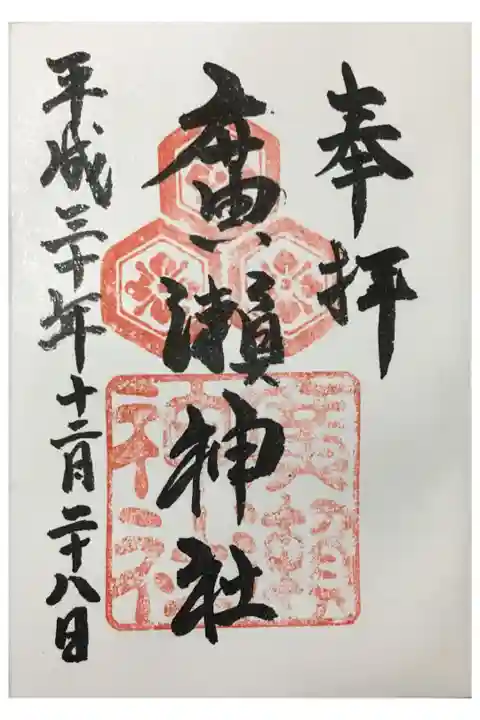 奉拝
廣瀬神社
平成三十年十二月二十八日